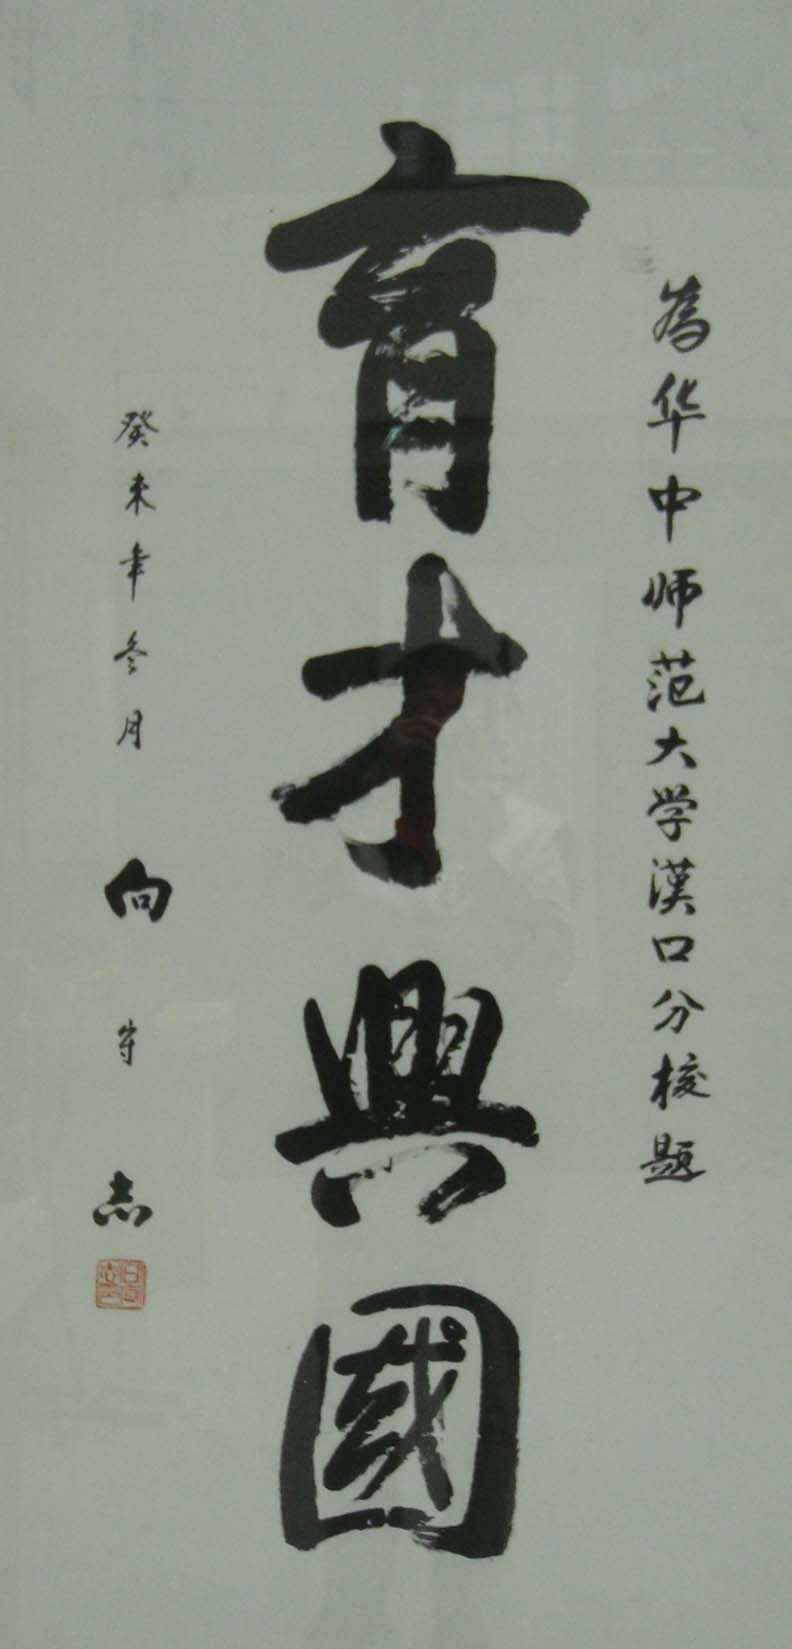 為华中师范大学漢口分校题
育才興國
癸未年冬月 向守志